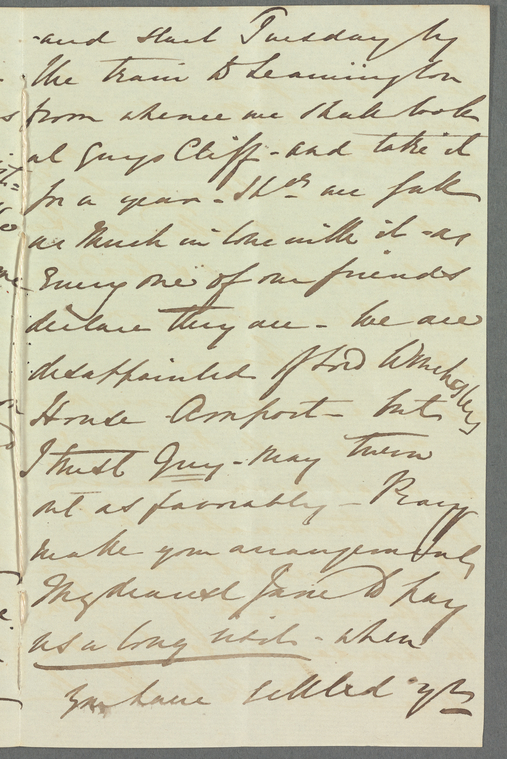 -and start Tuesday by
the train to Leamington
from whence we shall look
at Guys Cliff - and take it
for a year - Shd. we fall
as much in love with it - as
Every one of our friends
declare they are - We are
disappointed of Lord Winchesters
House - Amport - but
I trust Guy - may turn
out as favorably - Pray
make your arrangements
My dearest Jane to pay
us a long visit - when
You have settled yr